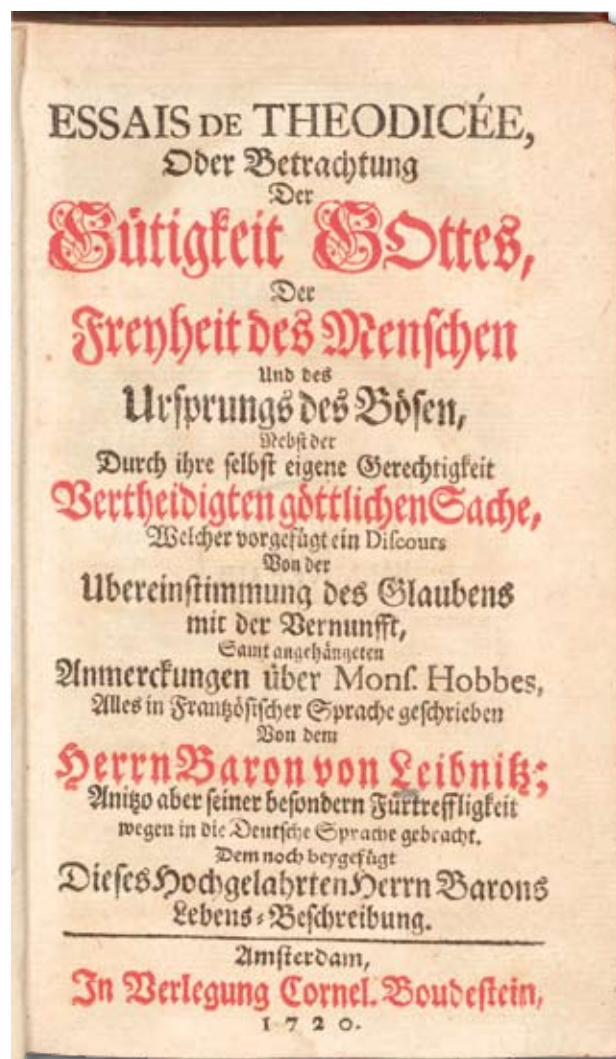 ESSAIS DE THEODICÉE,
Oder Betrachtung
Der
Gütigkeit GOttes,
Der
Freyheit des Menschen
Und des
Ursprungs des Bösen,
Nebst der
Durch ihre selbst eigene Gerechtigkeit
Vertheidigten göttlichen Sache,
Welcher vorgefügt ein Discours
Von der
Ubereinstimmung des Glaubens
mit der Vernunfft,
Samt angehängeten
Anmerckungen über Monſ. Hobbes,
Alles in Frantzösischer Sprache geschrieben
Von dem
Herrn Baron von Leibnitz;
Anitzo aber seiner besondern Fürtreffligkeit
wegen in die Deutsche Sprache gebracht.
Dem noch beygefügt
Dieses Hochgelahrten Herrn Barons
Lebens-Beschreibung.
Amsterdam,
In Verlegung Cornel. Boudestein,
1720.